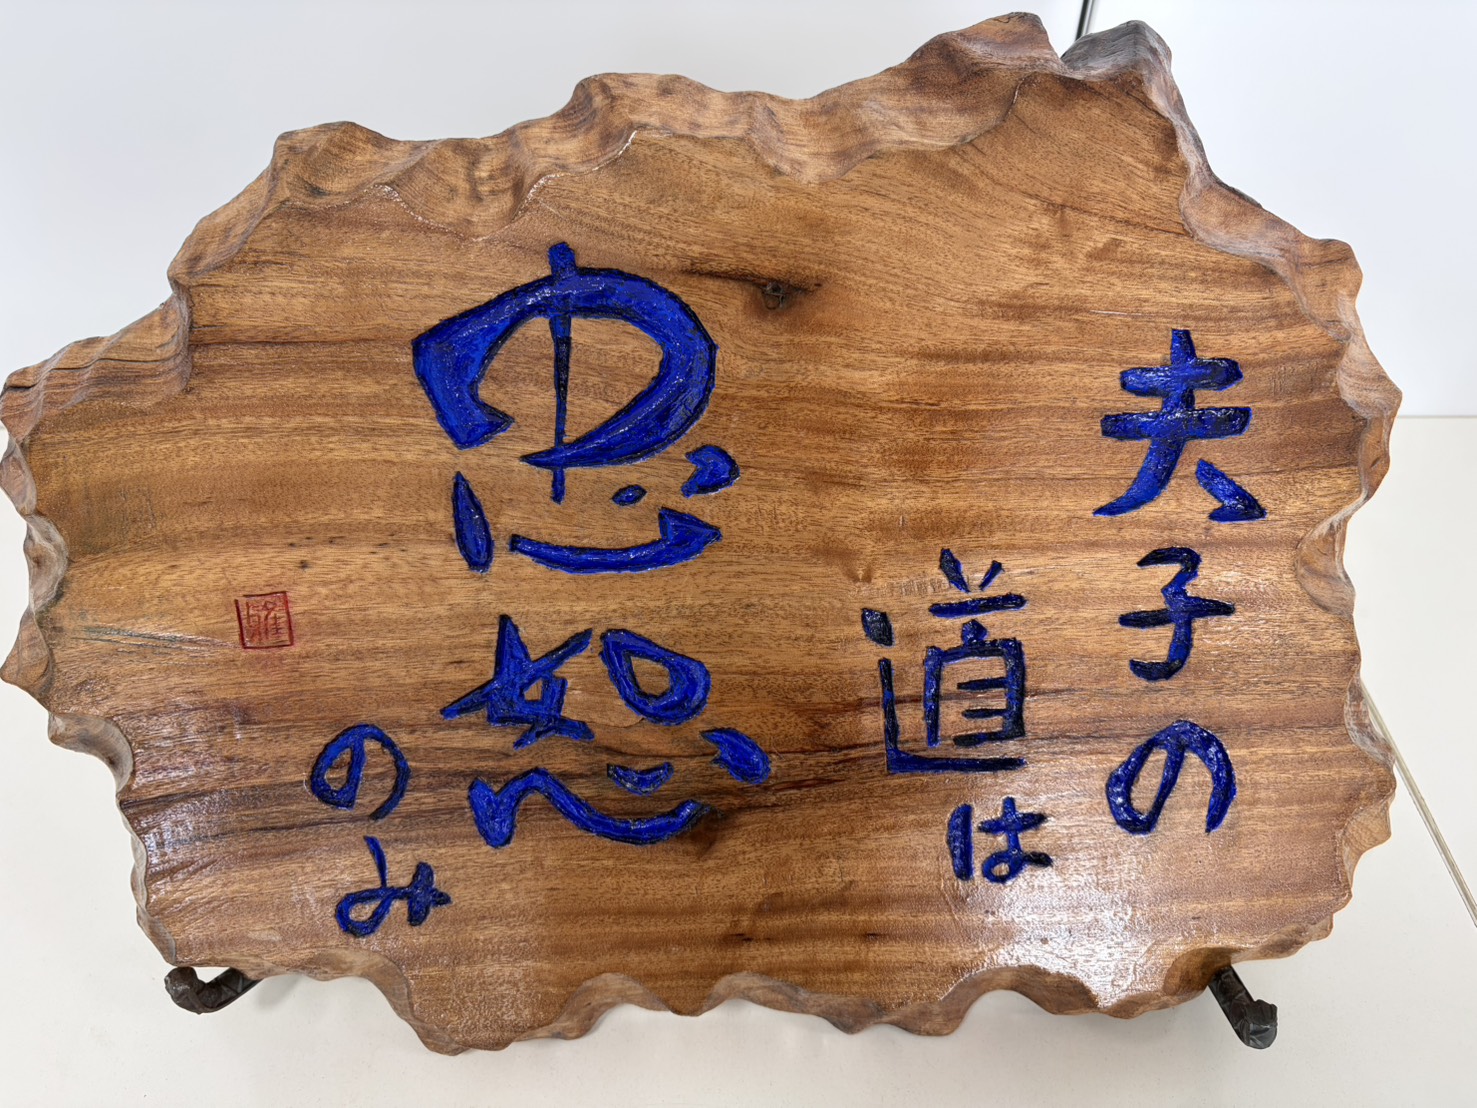 夫子の
道は
忠恕
のみ
雅